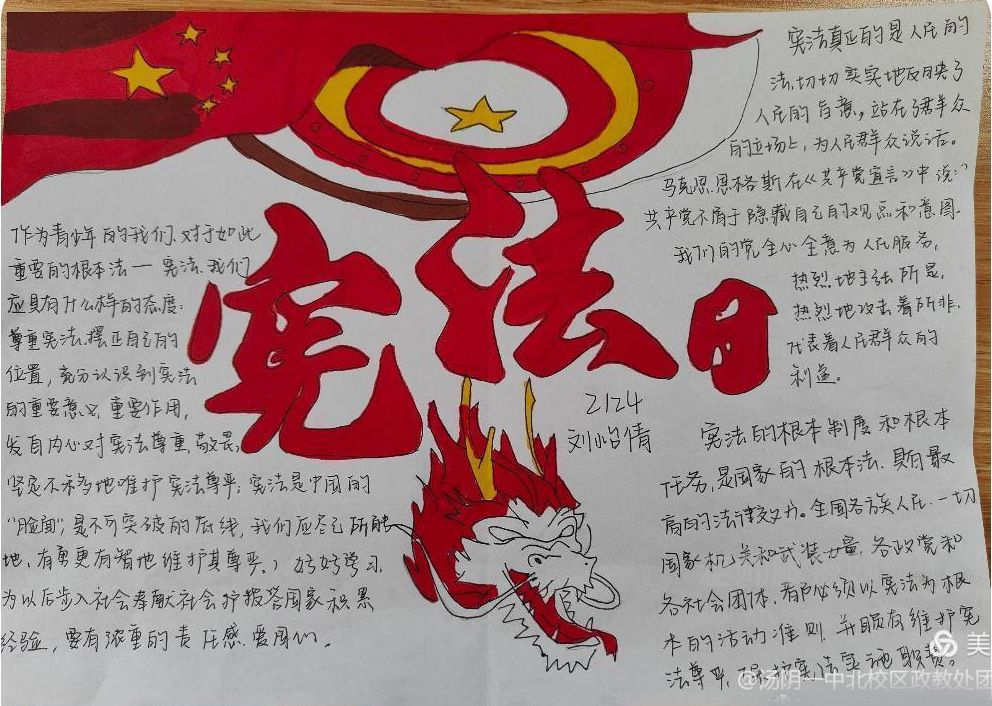 宪法日
2124
刘怡倩
作为青少年的我们、对于如此
重要的根本法一宪法.我们
应具有什么样的态度:
尊重宪法.摆正自己的
位置,充分认识到宪法
的重要意义,重要作用,
发自内心对宪法尊重,敬畏;
坚定不移地维护宪法尊严;宪法是中国的
"脸面",是不可突破的底线,我们应尽己所能
地、有勇更有智地维护其尊严,好好学习
为以后步入社会奉献社会护报答国家积累
经验,要有浓重的责任感.爱国心。
宪法真正的是人民的
法,切切实实地反映了
人民的旨意。站在了群众
的立场上,为人民群众说话。
马克思.恩格斯在《共产党宣言》中说:"
共产党不屑于隐藏自己的观点和意图.
我们的党全心全意为人民服务,
热烈地主张所是,
热烈地攻击着所非.
代表着人民群众的
利益。
宪法的根本制度和根本
任务,是国家的根本法.具有最
高的法律效力。全国各族人民.一切
国家机关和武装力量,各政党和
各社会团体.都必须以宪法为根
本的活动准则.并负有维护宪
法尊严、保护宪法实施职责。
美
@汤阴一中北校区政教处团